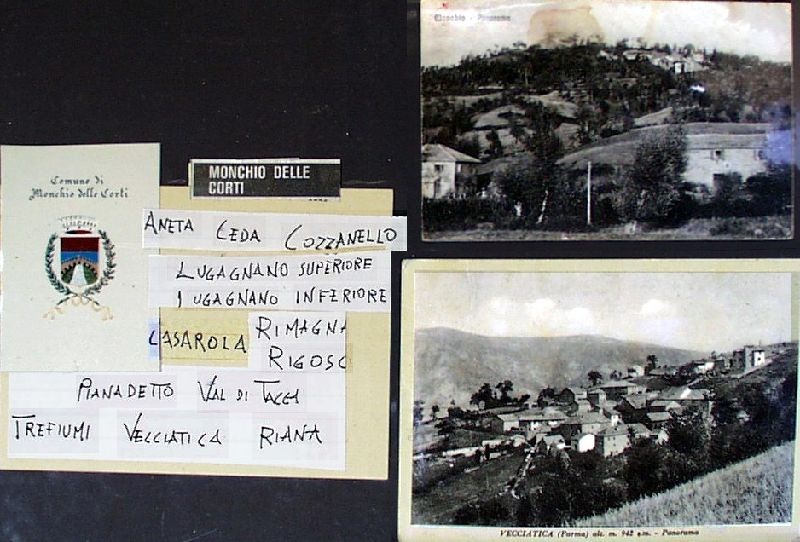 Comune di
Monchio delle Corti
MONCHIO DELLE
CORTI
ANETA CEDA COZZANELLO
LUGAGNANO SUPERIORE
LUGAGNANO INFERIORE
CASAROLA RIMAGNA
RIGOSO
PIANADETTO VAL DI TACCA
TREFIUMI VECCIATICA RIANA
Monchio - Panorama
VECCIATICA (Parma) alt. m. 942 s.m. - Panorama